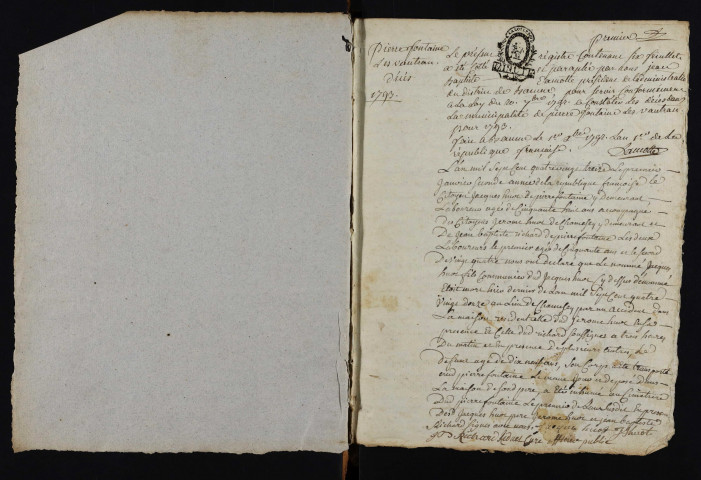 Premier
Pierrefontaine
Les varans
Décès
1793.
Le présent registre Contenant Six feuillets
a été Coté et paraphé par nous Jean
baptiste Lamotte président de l'administration
du district de baume, pour servir Conformément
a La Loy du 20. 7bre 1792. a Constater les décès dans
La municipalité de pierrefontaine les varans
pour 1793.
fait a baume le 1er Xbre 1792. L'an 1er de la
république françoise. Lamotte
L'an mil Sept Cent quatre vingt treize Le premier
Janvier Seconde année de la republique françoise le
Citoyen Jacques huot de pierrefontaine y demeurant,
Laboureur agé de Cinquante huit ans accompagné
des Citoyens Jerome huot de y demeurant et
De Jean baptiste richard de pierrefontaine Les deux
Laboureurs le premier agé de Cinquante ans et le second
De vingt quatre nous ont declaré que Le nommé Jacques
huot fils Communier dud. Jacques huot Cy dessus dénommé
étoit mort hier dernier de L'an mil Sept Cent quatre
Vingt douze au Lieu de par un accident dans
La maison residentielle dud. Jerome huot a la
presence de Celle dud. richard Soussignés a trois heures
Du matin et en presence de plusieurs autres, Le
defunt agé de dix neuf ans, Son Corps été transporté
aud. pierrefontaine le même Jour et deposé dans
La maison de Son pere, a été inhumé au Cimetiere
Dud. pierrefontaine Le premier de L'an Susdit en presence
Desd. Jacques huot pere Jerome huot et Jean baptiste
Richard Signés avec nous. J huot
JB Richard Curé officier public